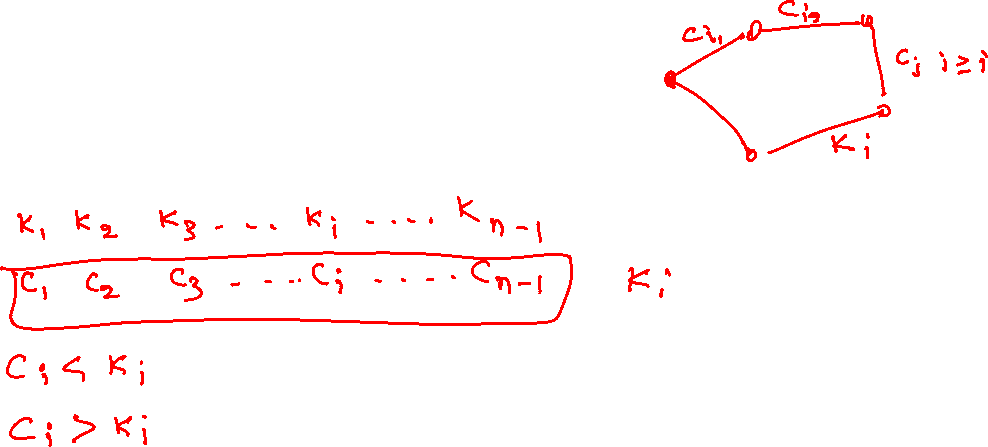 Ci₁ Ci₂
Cj j ≥ i
Ki
K₁ K₂ K₃ . . . Ki . . . . Kn-1
C₁ C₂ C₃ . . . . . Ci . . . . . Cn-1 Ki
Ci < Ki
Ci > Ki